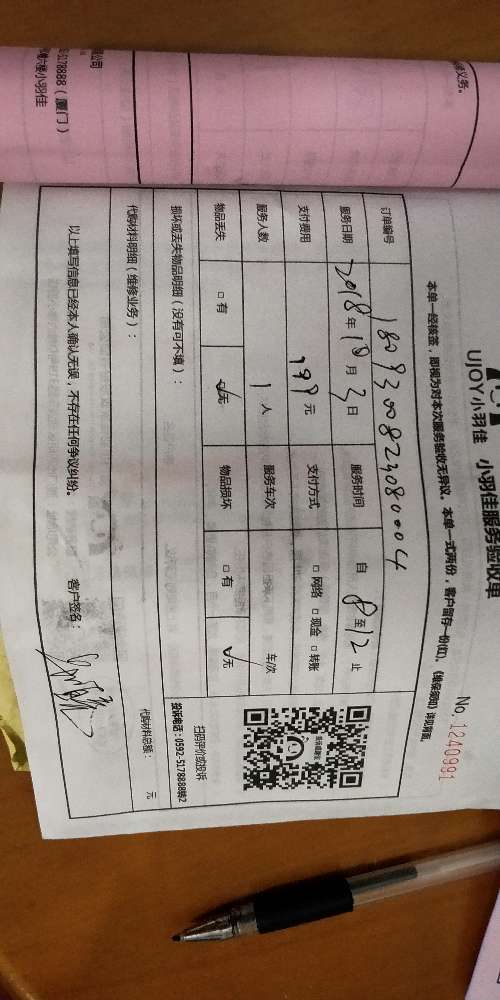 UJOY小羽佳 小羽佳服务验收单
No. 1240991
本单一经核签，即视为对本次服务验收无异议。本单一式两份，客户留存一份(红)。《维保须知》详见背面。
订单编号 180930082308000 4
服务日期 2018年10月3日 服务时间 自 8 至 12 止
支付费用 元 支付方式 □ 网络 □ 现金 □ 转账
服务人数 1 人 服务车次 车/次
物品丢失 □ 有 ☑无 物品损坏 □ 有 ☑无
损坏或丢失物品明细（没有可不填）：
扫码评价或投诉
投诉电话：0592-5178888转2
代购材料明细（维修业务）：
代购材料总额： 元
以上填写信息已经本人确认无误，不存在任何争议纠纷。 客户签名：
公司
5178888（厦门）
楼小羽佳
义务。